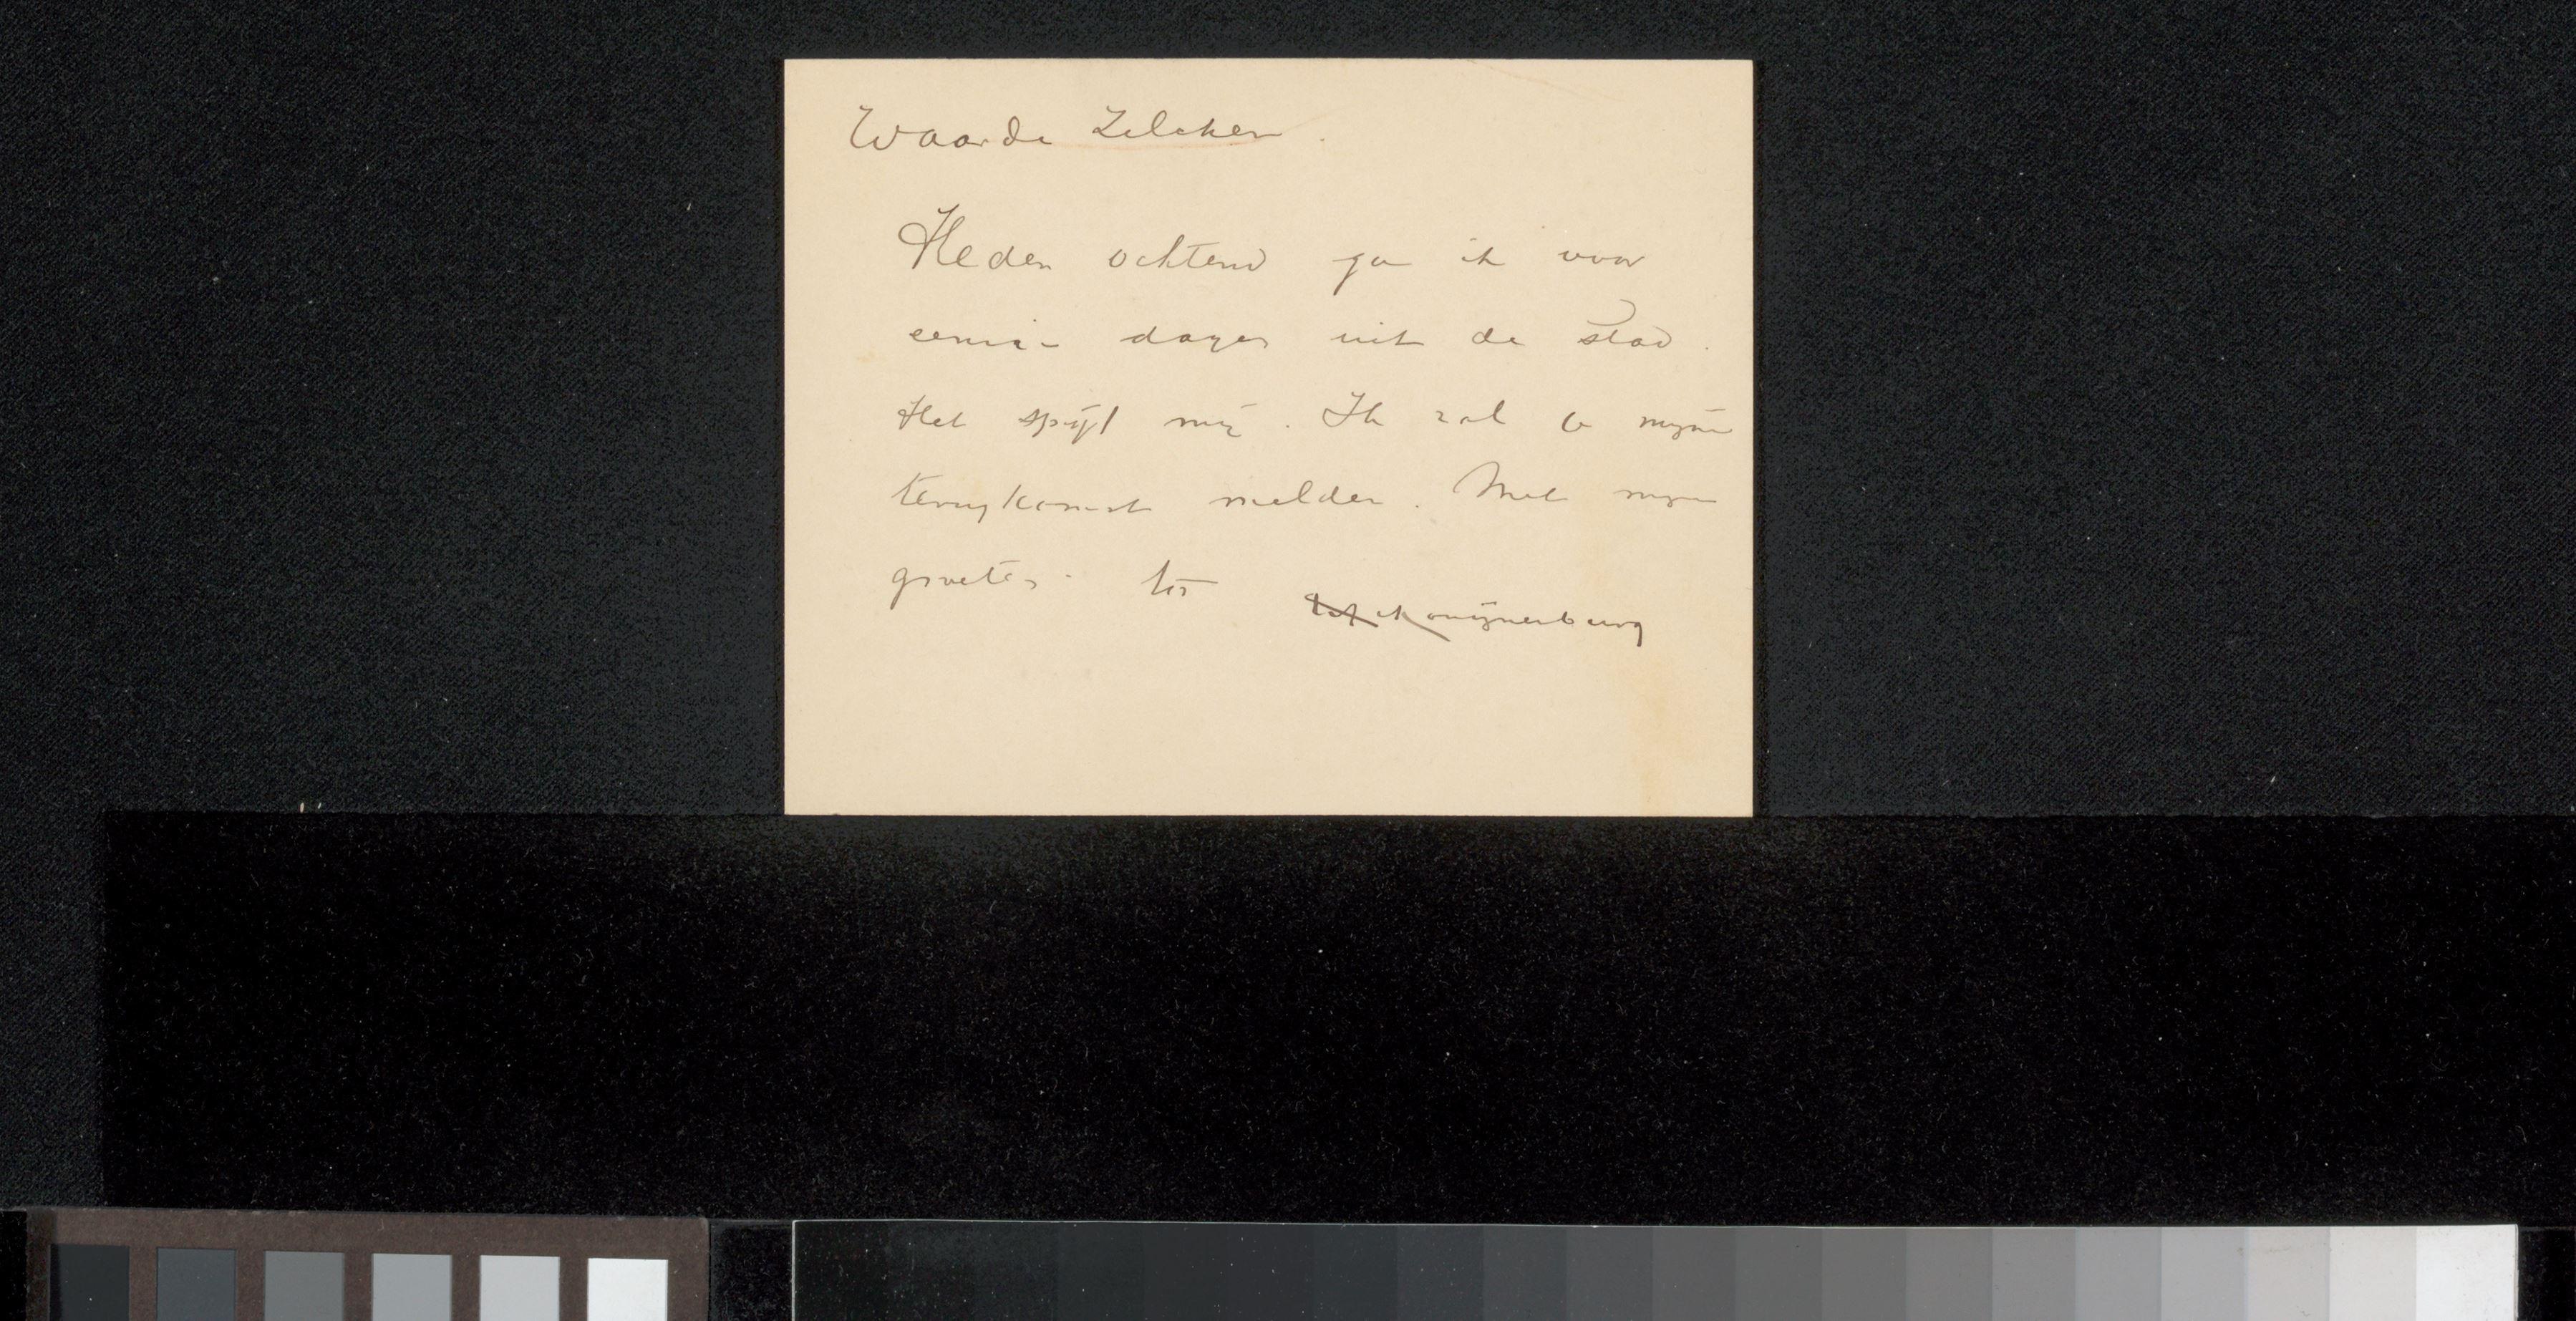 Waarde Zilcken.
Heden ochtend ga ik voor
eenige dagen uit de stad.
Het spijt mij. Ik zal U mijne
terugkomst melden. Met mijne
groeten. tt
Konijnenburg